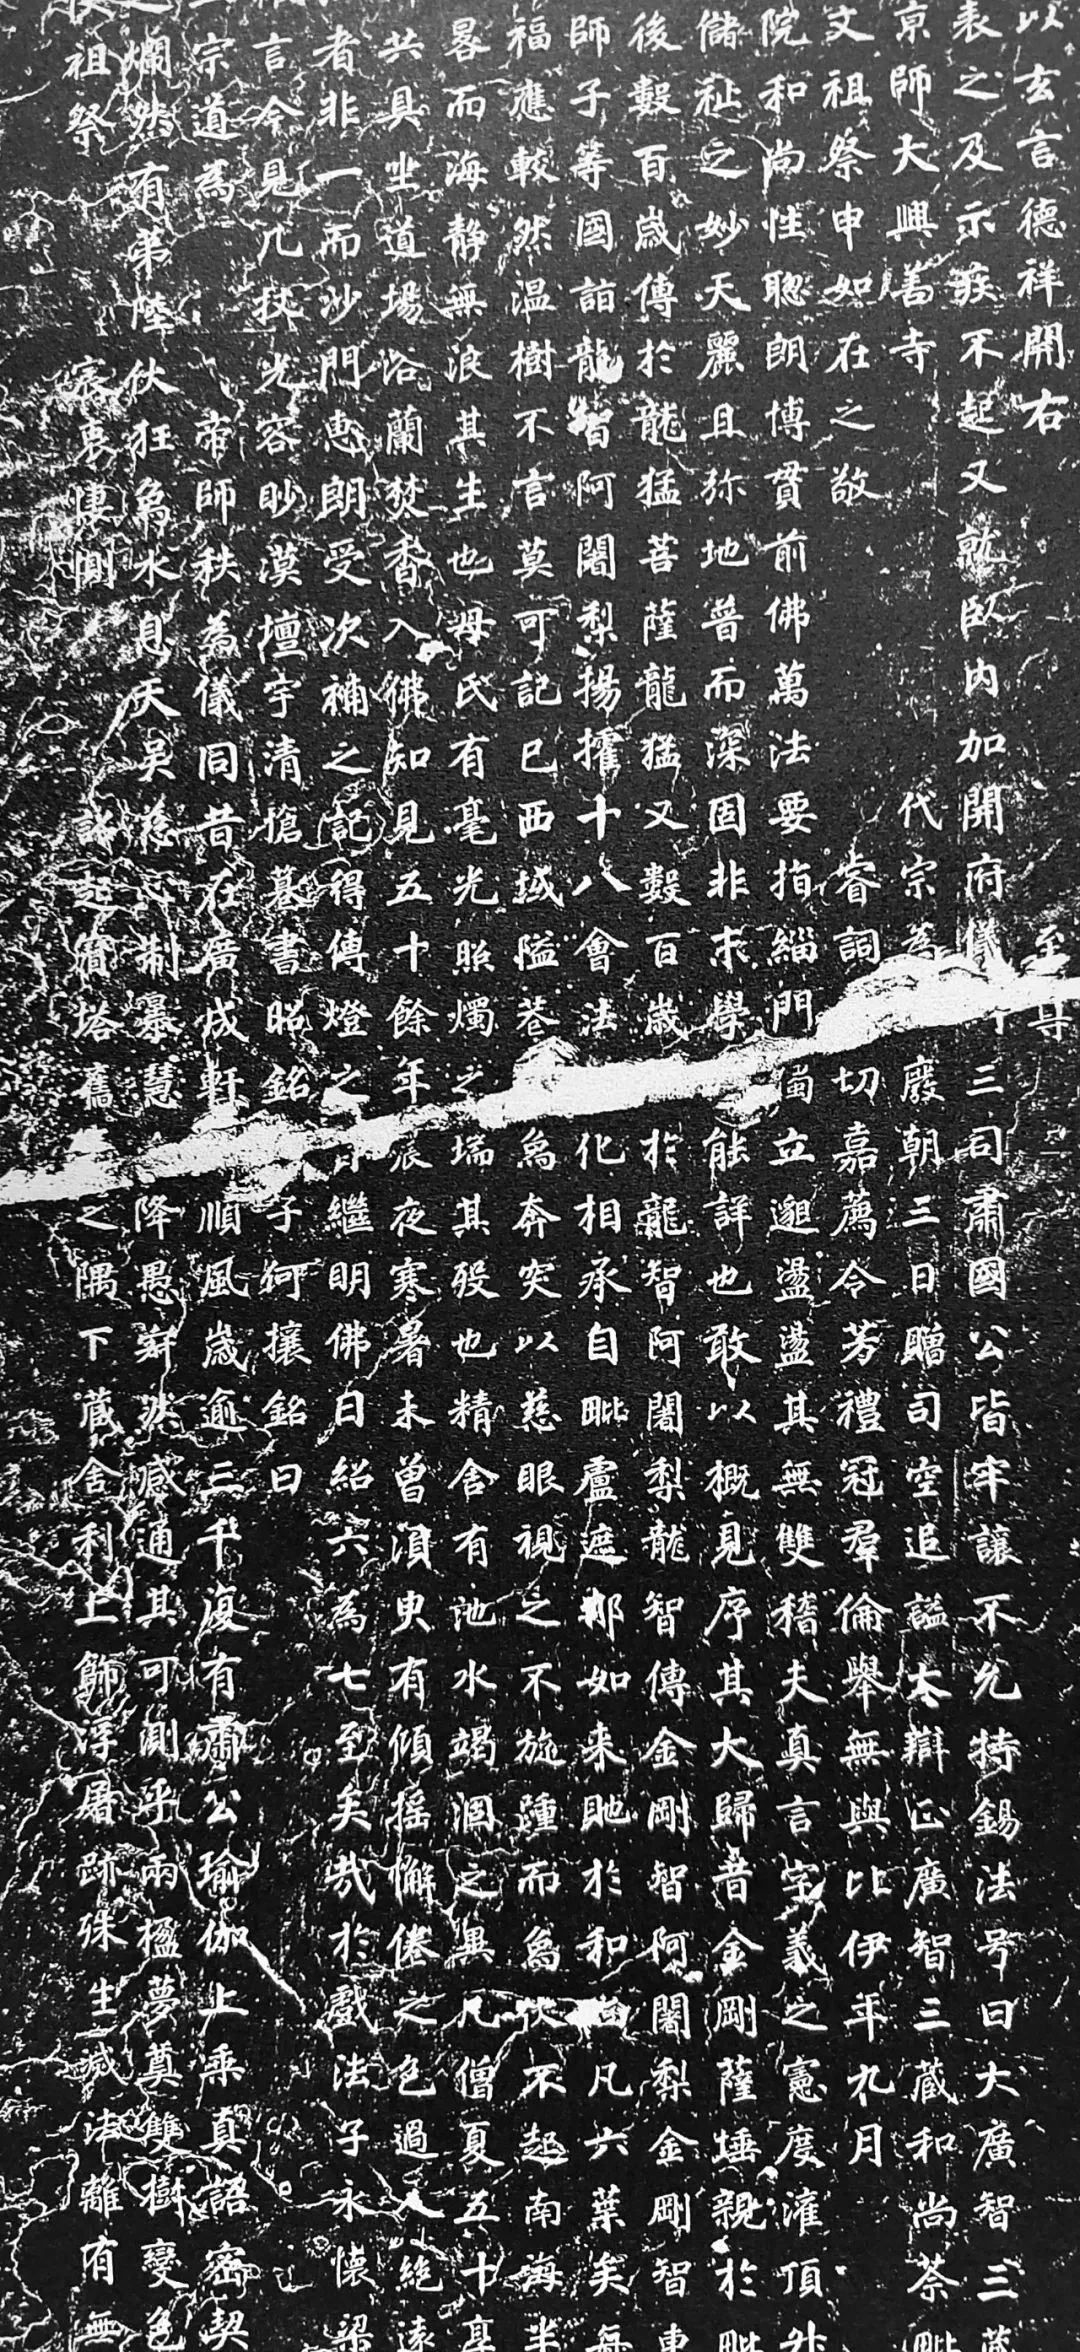 以玄言德祥開右至尊
表之及示疾不起又就臥內加開府儀三司肅國公皆牢讓不允特錫法号曰大廣智三藏
京師大興善寺代宗為廢朝三日贈司空追謚大辯正廣智三藏和尚荼毗
文祖祭申如在之敬睿詞切嘉薦令芳禮冠群倫舉無與比伊年九月
院和尚性聰朗博貫前佛萬法要指緇門獨立邈盪盪其無雙稽夫真言字義之憲度灌頂升
儲祉之妙天麗且弥地普而深固非末學能詳也敢以概見序其大歸昔金剛薩埵親於毗
後數百歲傳於龍猛菩薩龍猛又數百歲於龍智阿闍梨龍智傳金剛智阿闍梨金剛智東
師子等國詣龍智阿闍梨揚攉十八會法化相承自毗盧遮那如來貤於和尚凡六葉矣每
福應較然溫樹不言莫可記已西域隘巷為奔突以慈眼視之不旋踵而為伏不起南海半
晷而海靜無浪其生也母氏有毫光照燭之瑞其歿也精舍有池水竭涸之異凡僧夏五十享
共具坐道場浴蘭焚香入佛知見五十餘年晨夜寒暑未曾湏臾有傾搖懈倦之色過人絕遠
者非一而沙門惠朗受次補之記得傳燈之旨繼明佛日紹六為七至矣哉於戲法子永懷梁
言今見几杖光容眇漠壇宇清愴篹書昭銘子何攘銘曰
宗道為帝師秩為儀同昔在廣成軒順風歲逾三千復有肅公瑜伽上乘真語密契
爛然有弟陸伏狂為水息天吳慈心制暴慧降愚寂然感通其可測乎兩楹夢奠雙樹變色
祖祭宸衷悽惻詔起寶塔舊之隅下藏舍利上飾浮屠跡殊生滅法離有無